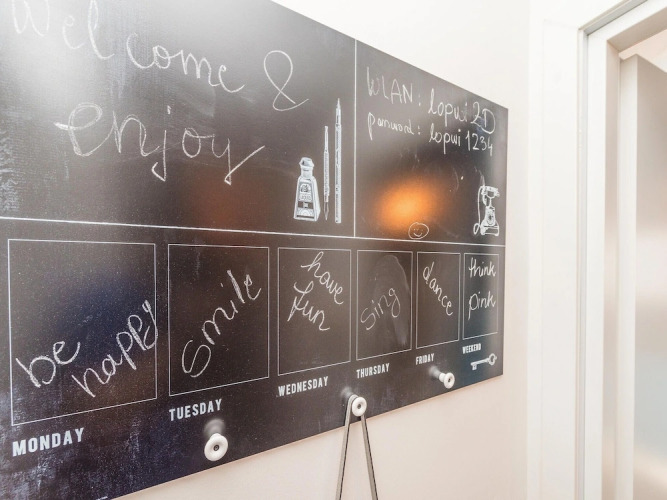 Welcome &
enjoy
WLAN: lopui 2D
password: lopui 1234
be happy
MONDAY
smile
TUESDAY
have
fun
WEDNESDAY
sing
THURSDAY
dance
FRIDAY
think
pink
WEEKEND